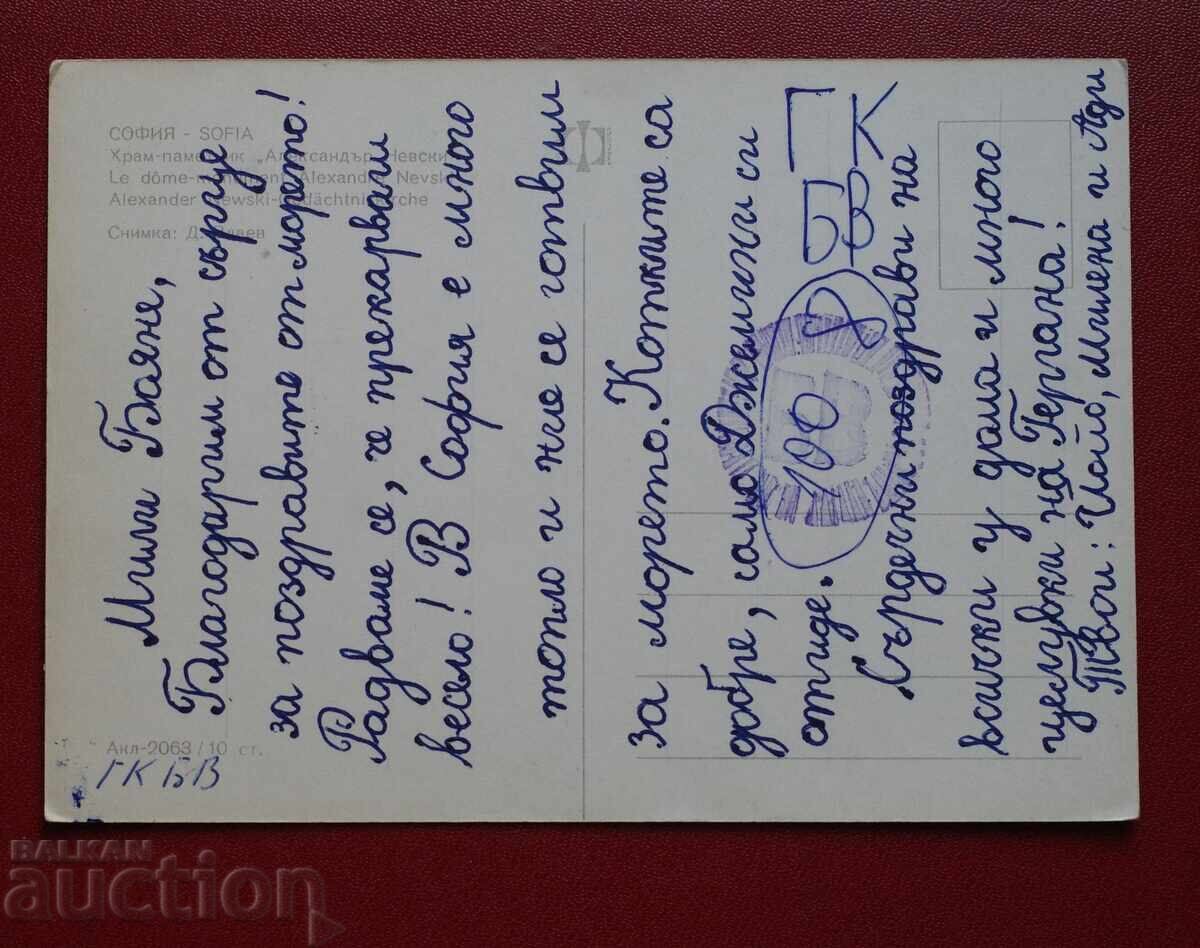 СОФИЯ - SOFIA
Храм-паметник „Александър Невски“
Le dôme-monument Alexandre Nevski
Alexander Newski-Gedächtniskirche
Снимка: Д.
Мили Баяне,
Благодарим от сърце
за поздравите от морето!
Радваме се, че прекарвш
весело! В София е много
топло и ние се готвим
за морето. Котките са
добре, само Джинджи си
отиде.
Сърдечни поздрави на
всички у дома и много
целувки на Гергана!
Твои: Цойо, Милена и Ади
ГК
БВ
190 8
Акл-2063/10 ст.
ГКБВ
BALKAN
auction